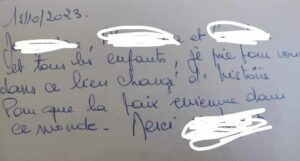 15/10/2023.
et
et tous les enfants, je prie pour vous
dans ce lieu chargé d'histoire
Pour que la paix revienne dans
ce monde - Merci